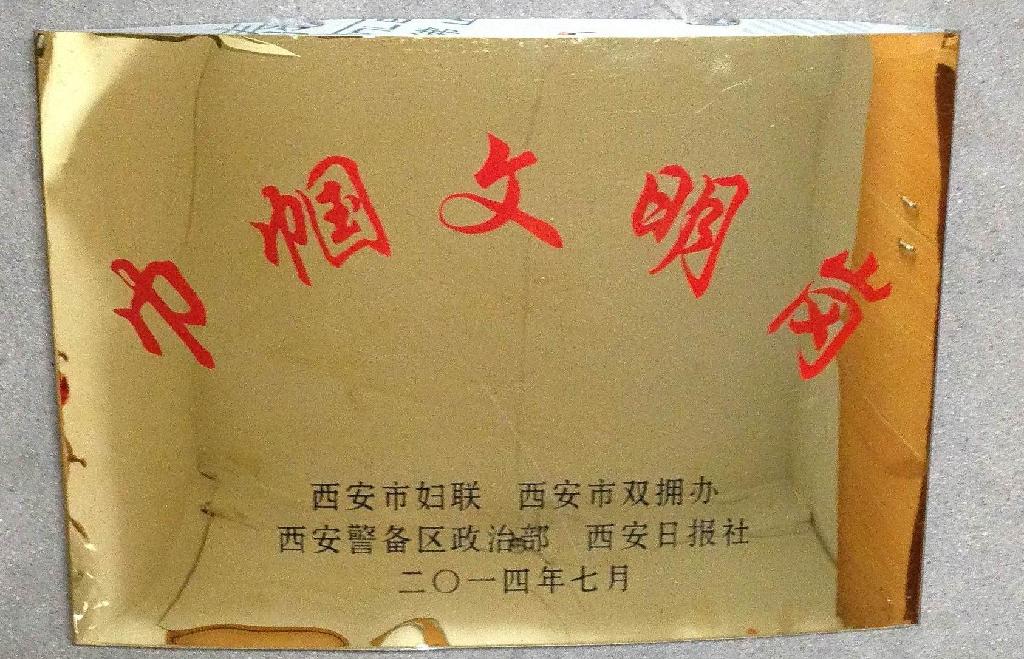 巾帼文明岗
西安市妇联 西安市双拥办
西安警备区政治部 西安日报社
二〇一四年七月